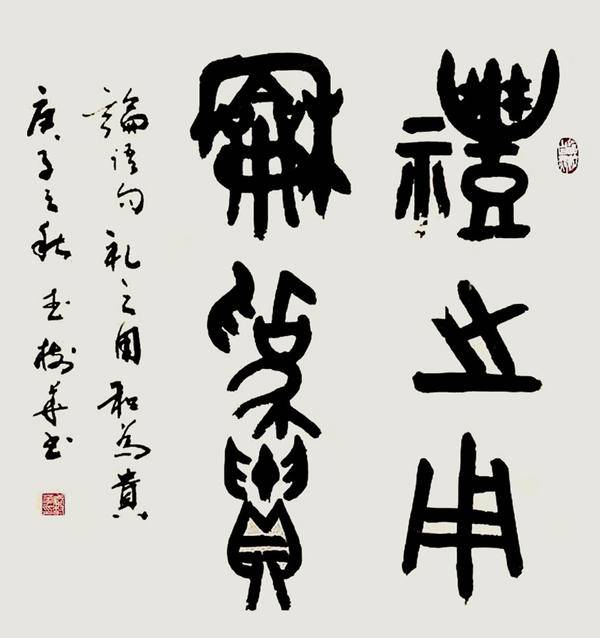 禮之用
龢為貴
論語句 礼之用和為貴
庚子之秋 樹華书